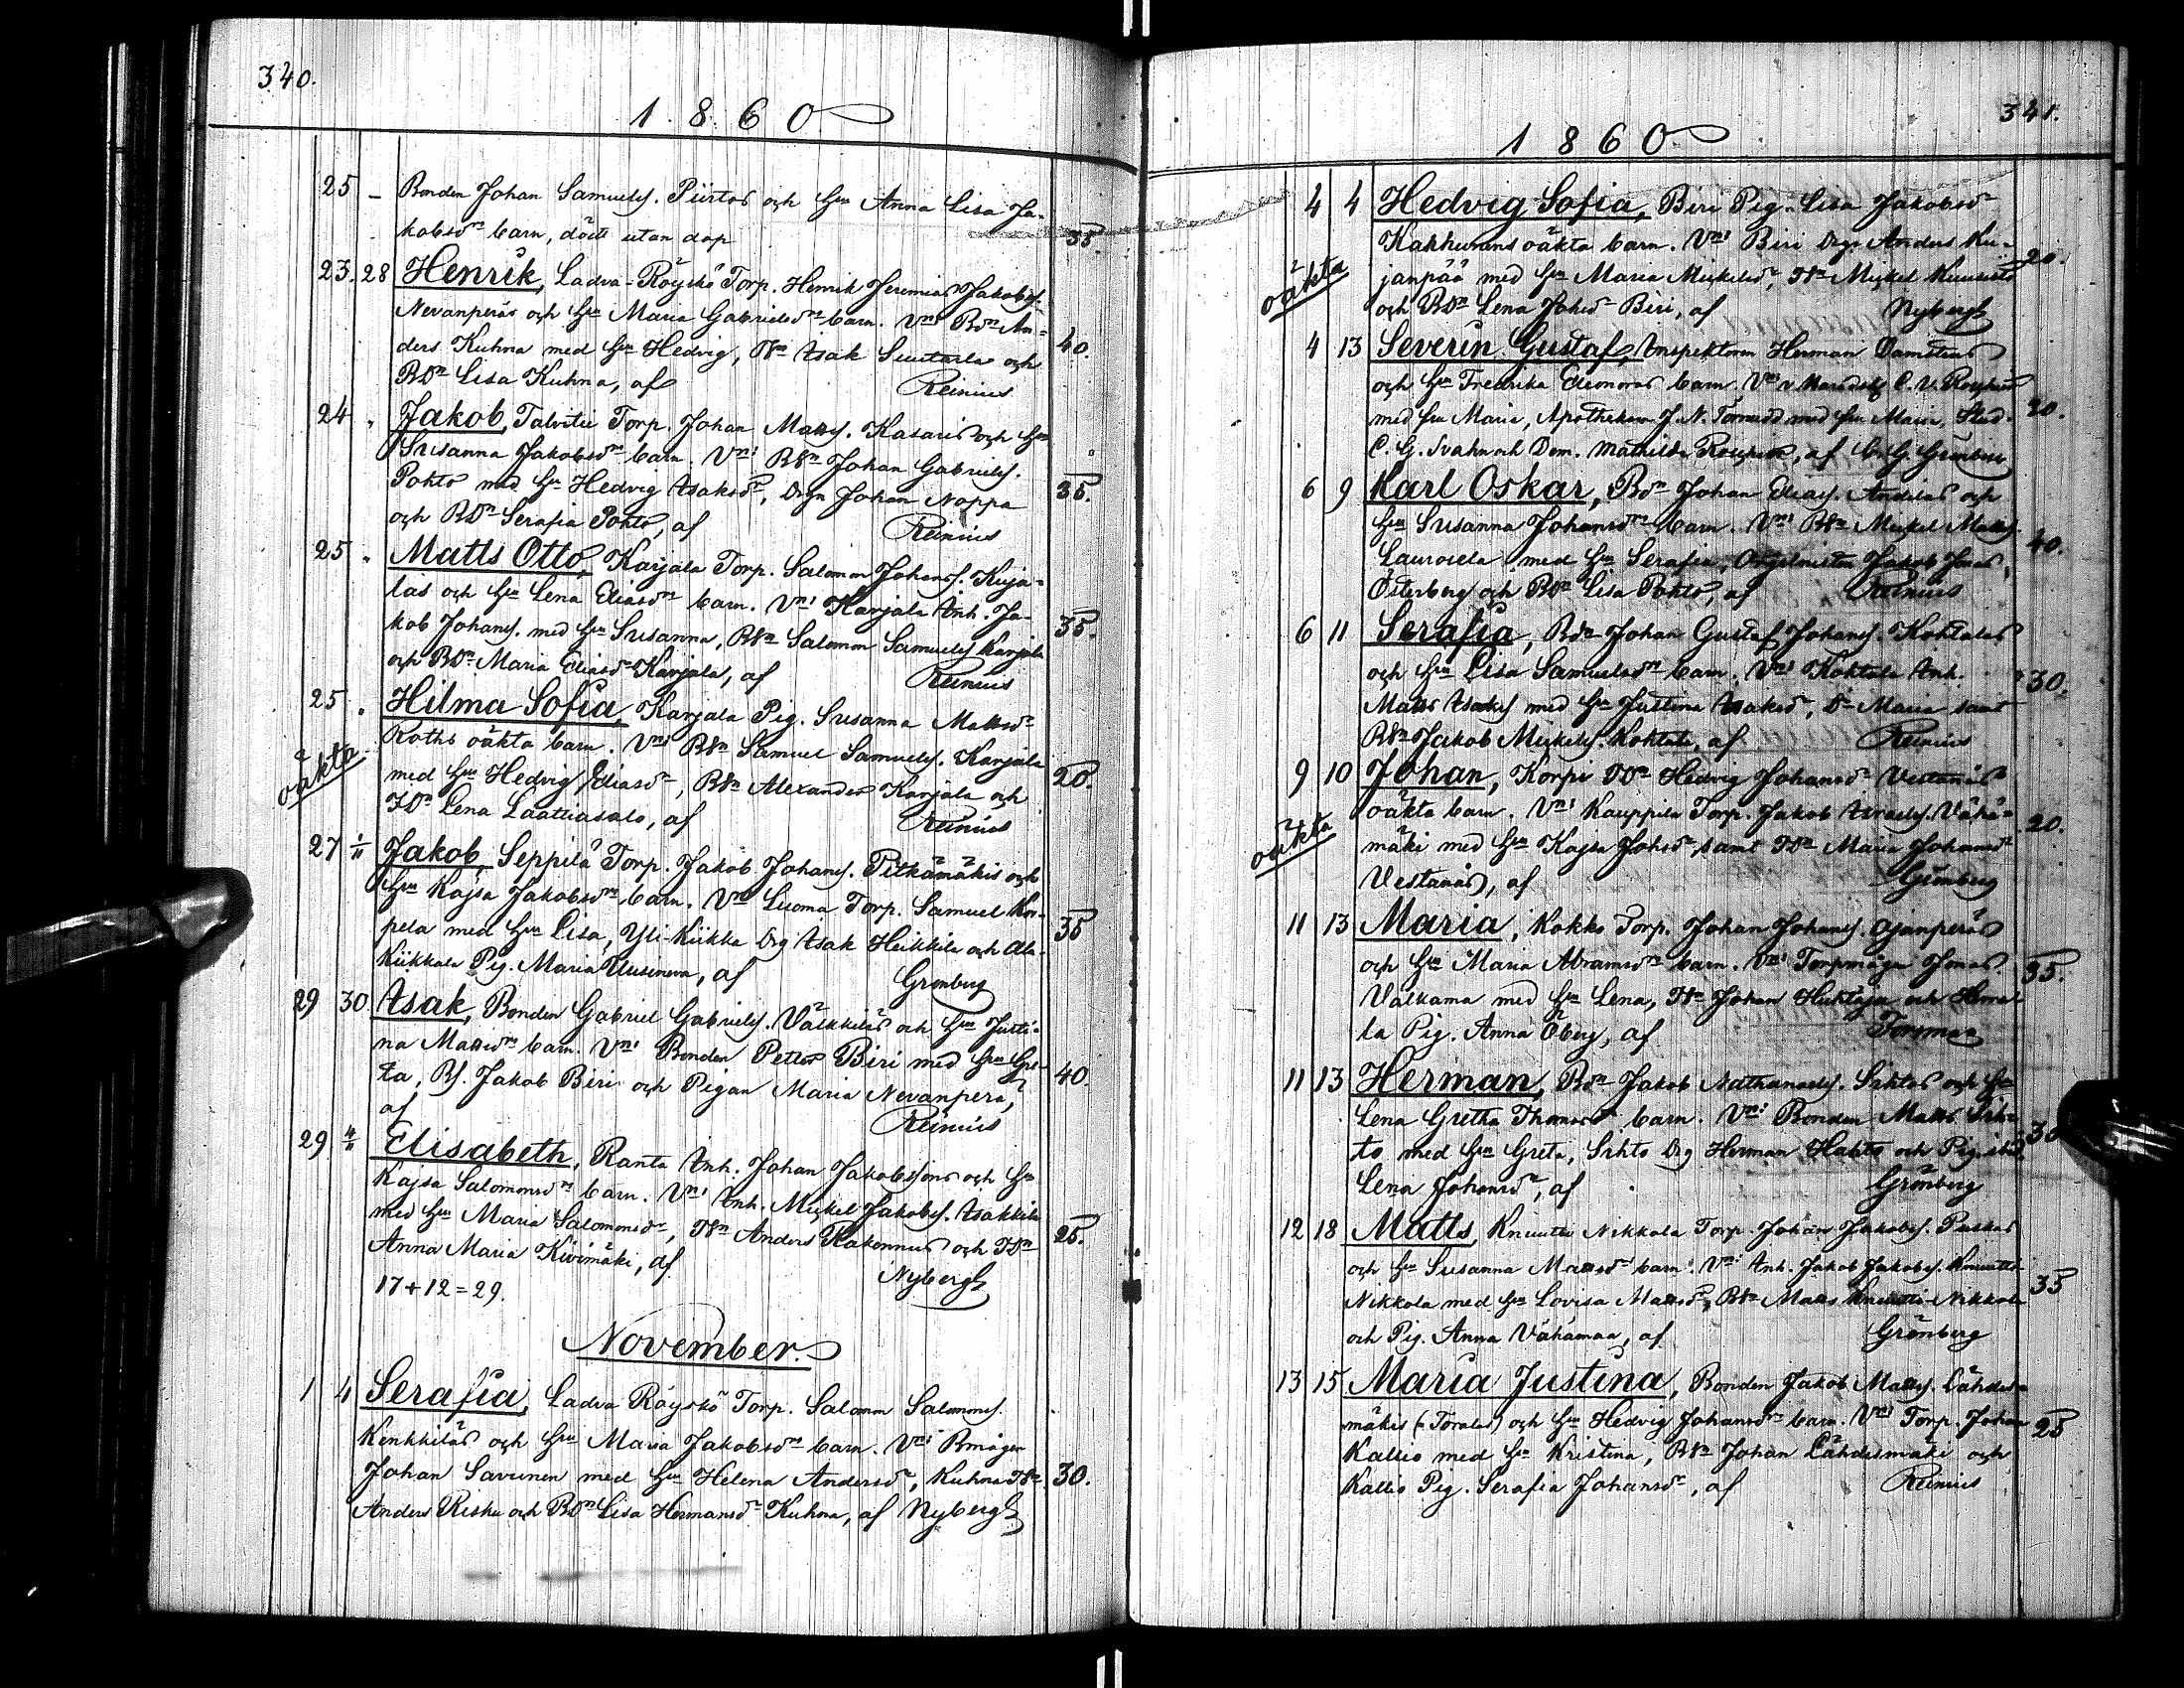 340.
1860
25 - Bonden Johan Samuelss. Piirtos och Hu Anna Lisa Ja-
kobsdrs barn, dödt utan dop 35
23. 28 Henrik, Ladva-Röyskö Torp. Henrik Jeremias Jakobss.
Nevanperäs och Hu Maria Gabrielsdrs barn. Vn: Bdn An-
ders Kuhna med Hu Hedvig, Dn Isak Luutarla och 40.
BDn Lisa Kuhna, af Reinius
24 " Jakob, Talvitie Torp. Johan Matss. Kasaris och Hu
Susanna Jakobsdrs barn. Vn: BSn Johan Gabrielss.
Pohto med Hu Hedvig Isaksdr, Drgn Johan Noppa 35.
och BDn Serafia Pohto, af Reinius
25 " Matts Otto, Karjala Torp. Salomon Johanss. Kuja-
las och Hu Lena Eliasdrs barn. Vn: Karjala Inh. Ja-
kob Johanss. med Hu Susanna, BSn Salomon Samuelss Karjala 35.
och BDn Maria Eliasdr Karjala, af Reinius
25 " Hilma Sofia, Karjala Pig. Susanna Matsdr
Roths oäkta barn. Vn: BSn Samuel Samuelss. Karjala
oäkta med Hu Hedvig Eliasdr, BSn Alexander Karjala och 20.
TDn Lena Laattiasalo, af Reinius
27 1/11 Jakob, Seppilä Torp. Jakob Johanss. Pitkämäkis och
Hu Kajsa Jakobsdrs barn. Vn: Luoma Torp. Samuel Kor-
pela med Hu Lisa, Yli-Kiikka Drg Isak Heikkila och Ala- 35
Kiikkala Pig. Maria Uusineva, af Grönberg
29 30 Isak, Bonden Gabriel Gabrielss. Välkkiläs och Hu Justi-
na Matsdrs barn. Vn: Bonden Petter Biri med Hu Gre-
ta, Bs. Jakob Biri och Pigan Maria Nevanperä, 40
af Reinius
29 4/11 Elisabeth, Ranta Inh. Johan Jakobssons och Hu
Kajsa Salomonsdrs barn. Vn: Inh. Mickel Jakobss. Isakkila
med Hu Maria Salomonsdr, TSn Anders Kakonnus och TDn 25.
Anna Maria Kivimäki, af Nybergh
17+12=29.
November.
1 4 Serafia, Ladva Röyskö Torp. Salomon Salomonss.
Kenkkiläs och Hu Maria Jakobsdrs barn. Vn: Bmågen
Johan Savunen med Hu Helena Andersdr, Kuhna TSn 30.
Anders Risku och BDn Lisa Hermansdr Kuhna, af Nybergh
341.
1860
4 4 Hedvig Sofia, Biri Pig. Lisa Jakobsdr
Kakkurins oäkta barn. Vn: Biri Drgn Anders Ku- 20.
oäkta janpää med Hu Maria Mickelsdr, TSn Mickel Kuusisto
och BDn Lena Johsdr Biri, af Nybergh
4 13 Severin Gustaf, Inspektoren Herman Damstens
och Hu Fredrika Eleonoras barn. Vn: C. V. Roschier
med fru Maria, Apothekare J. N. Tornudd med fru Maria, Stud. 20.
C. G. Svahn och Dem. Mathilda Roschier, af C. G. Grönberg
6 9 Karl Oskar, Bdn Johan Eliass. Andilas och
Hu Susanna Johansdrs barn. Vn: BSn Mickel Matss.
Laurosela med Hu Serafia, Orgelnisten Jakob Jonas 40.
Österberg och BDn Lisa Pohto, af Reinius
6 11 Serafia, Bdn Johan Gustaf Johanss. Kohtalas
och Hu Lisa Samuelsdrs barn. Vn: Kohtala Inh.
Matts Isakss med Hu Justina Isaksdr, Dr Maria samt 30.
BSn Jakob Mickelss. Kohtala, af Reinius
9 10 Johan, Korpi TDn Hedvig Johansdr Vestanås
oäkta barn. Vn: Kauppila Torp. Jakob Israelss. Vähä- 20.
oäkta mäki med Hu Kajsa Johsdr, samt TDn Maria Johansdr
Vestanås, af Grönberg
11 13 Maria, Kokko Torp. Johan Johanss. Ojanperäs
och Hu Maria Abramsdrs barn. Vn: Torpmågen Jonas 35.
Valkama med Hu Lena, TSn Johan Huhtaja och
la Pig. Anna Öberg, af Forsman
11 13 Herman, Bdn Jakob Nathanaelss. Sihtos och Hu
Lena Gretha Thomasdrs barn. Vn: Bonden Matts Sih-
to med Hu Greta, Sihto Drg Herman Hahto och Pig. ibid. 30
Lena Johansdr, af Grönberg
12 18 Matts, Knuutti Nikkola Torp. Johan Jakobss. Puskas
och Hu Susanna Matsdrs barn. Vn: Inh. Jakob Jakobss. Knuutti
Nikkola med Hu Lovisa Matsdr, BSn Matts Knuutti-Nikkola 35
och Pig. Anna Vähämaa, af Grönberg
13 15 Maria Justina, Bonden Jakob Matss. Lähdes-
mäkis (-Torales) och Hu Hedvig Johansdrs barn. Vn: Torp. Johan 25
Kallio med Hu Kristina, BSn Johan Lähdesmäki och
Kallio Pig. Serafia Johansdr, af Reinius